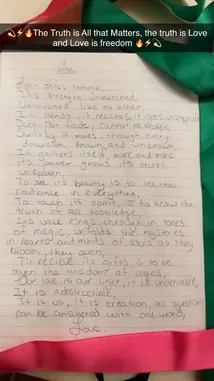 💫⚡🔥The Truth is All that Matters, the truth is Love
and Love is freedom 🔥⚡💫
Light shines through,
Its strength unmatched,
like no other
It bends, it reaches, it goes
not fade, cannot be broken,
Surely it moves through every
dimension known and unknown
It gathers itself more and more
Its power grows, its secret
unspoken,
To see its beauty is to see the
radiance in everything,
To touch its spirit, is to know the
truth of all knowledge
Its voice rings through in tones
of magic, unfolds the mysteries
in hearts and minds of souls as they
bloom, they open,
To receive its gifts is to be
given the wisdom of ages,
Our love is our light, it is undeniable,
It is indestructible,
It is us, it is creation, all questions
can be answered with one word,
Love.